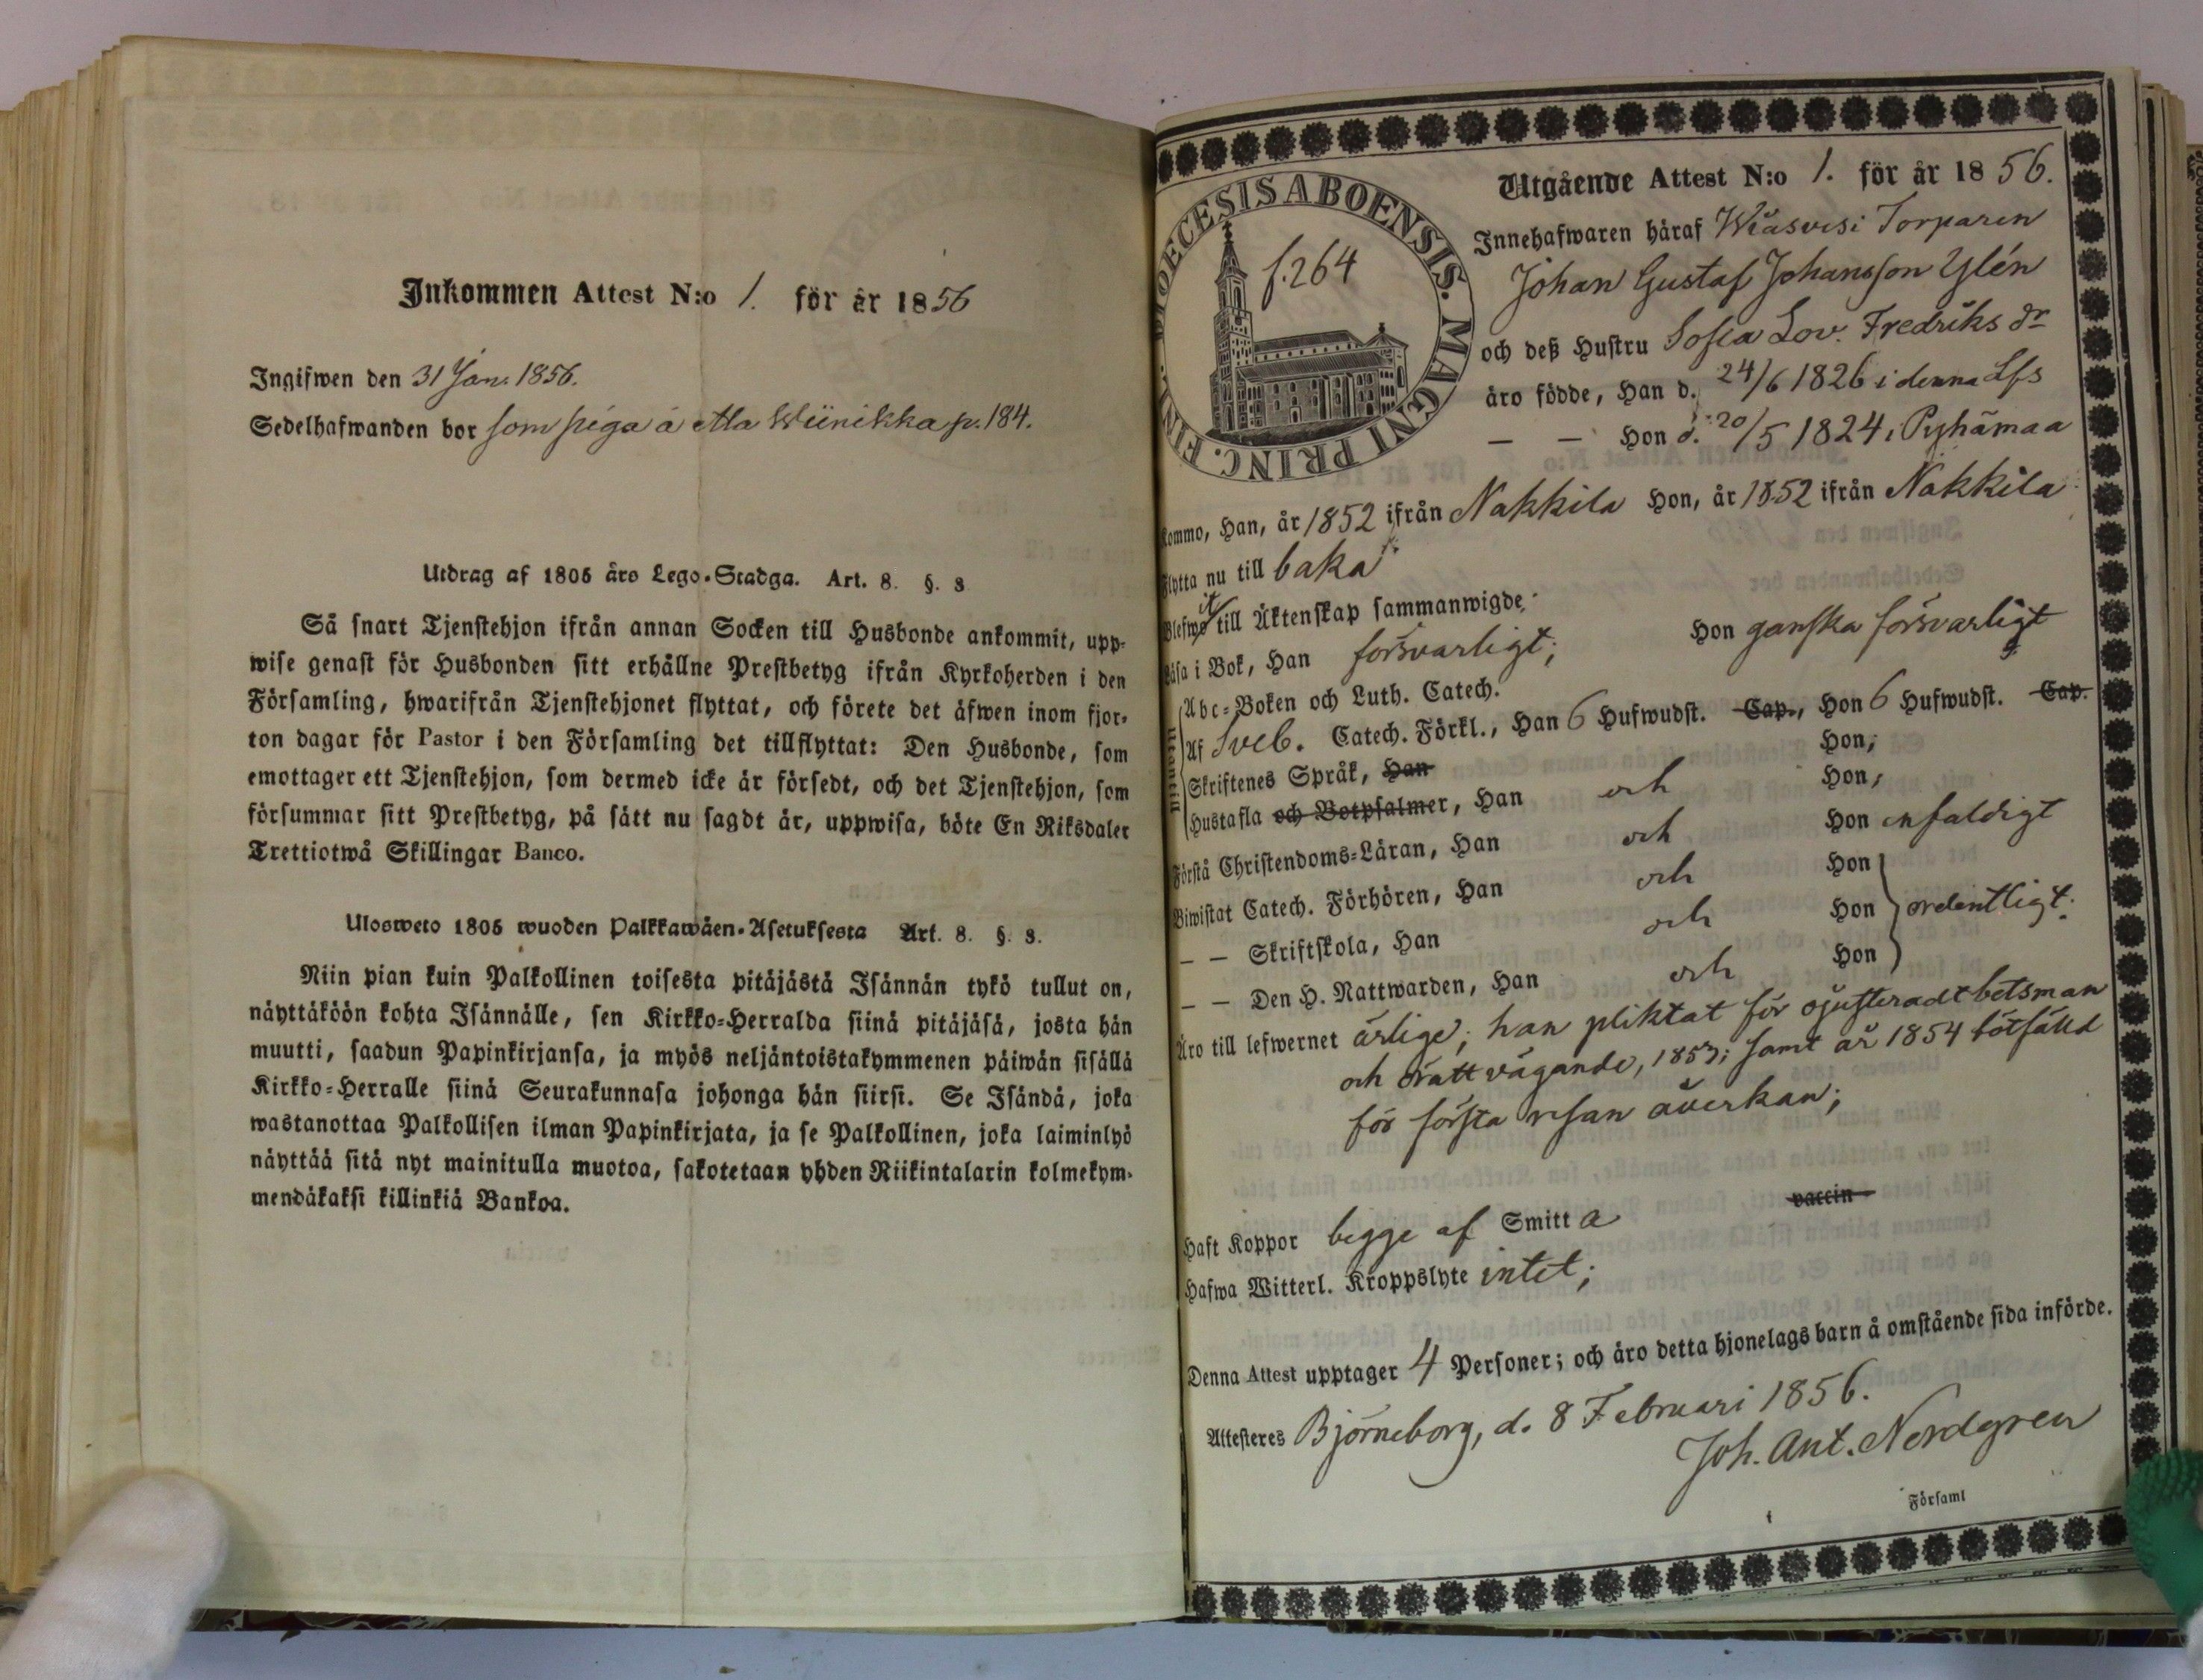 Inkommen Attest N:o 1. för år 1856
Ingifwen den 31 Jan. 1856.
Sedelhafwanden bor som piga å Wiinikka p. 184.
Utdrag af 1805 års Lego-Stadga. Art. 8. §. 8
Så snart Tjenstehjon ifrån annan Socken till Husbonde ankommit, upp-
wise genast för Husbonden sitt erhållne Prestbetyg ifrån Kyrkoherden i den
Församling, hwarifrån Tjenstehjonet flyttat, och förete det äfwen inom fjor-
ton dagar för Pastor i den Församling det tillflyttat: Den Husbonde, som
emottager ett Tjenstehjon, som dermed icke är försedt, och det Tjenstehjon, som
försummar sitt Prestbetyg, på sätt nu sagdt är, uppwisa, böte En Riksdaler
Trettiotwå Skillingar Banco.
Ulosweto 1805 wuoden Palkkawäen-Asetuksesta Art. 8. §. 8.
Niin pian kuin Palkollinen toisesta pitäjästä Isännän tykö tullut on,
näyttäköön kohta Isännälle, sen Kirkko-Herralda siinä pitäjäsä, josta hän
muutti, saadun Papinkirjansa, ja myös neljäntoistakymmenen päiwän sisällä
Kirkko-Herralle siinä Seurakunnasa johonga hän siirsi. Se Isändä, joka
wastanottaa Palkollisen ilman Papinkirjata, ja se Palkollinen, joka laiminlyö
näyttää sitä nyt mainitulla muotoa, sakotetaan yhden Riikintalarin kolmekym-
mendäkaksi killinkiä Bankoa.
DIOECESIS ABOENSIS. MAGNI PRINC. FINL.
f. 264
Utgående Attest N:o 1. för år 1856.
Innehafwaren häraf Wiäsvesi Torparen
Johan Gustaf Johansson Ylén
och deß Hustru Sofia Lov. Fredriks dr
äro födde, Han d. 24/6 1826 i denna Lfs
— — Hon d. 20/5 1824 i Pyhämaa
Kommo, Han, år 1852 ifrån Nakkila Hon, år 1852 ifrån Nakkila
Flytta nu till baka
Blefwo till Äktenskap sammanwigde
Läsa i Bok, Han försvarligt; Hon ganska försvarligt
Utantill
Abc-Boken och Luth. Catech.
Af Sveb. Catech. Förkl., Han 6 Hufwudst. Cap., Hon 6 Hufwudst. Cap.
Skriftenes Språk, Han Hon,
Hustafla och Botpsalmer, Han och Hon,
Förstå Christendoms-Läran, Han och Hon enfaldigt
Biwistat Catech. Förhören, Han och Hon
— — Skriftskola, Han och Hon ordentligt.
— — Den H. Nattwarden, Han och Hon
Äro till lefwernet ärlige; han pliktat för ojusteradt betsman
och orätt vägande, 1853; samt år 1854 bötfälld
för första resan åverkan;
Haft Koppor begge af Smitta vaccin
Hafwa Witterl. Kroppslyte intet;
Denna Attest upptager 4 Personer; och äro detta hjonelags barn å omstående sida införde.
Attesteres Björneborg, d. 8 Februari 1856.
Joh. Ant. Nordgren
Församl